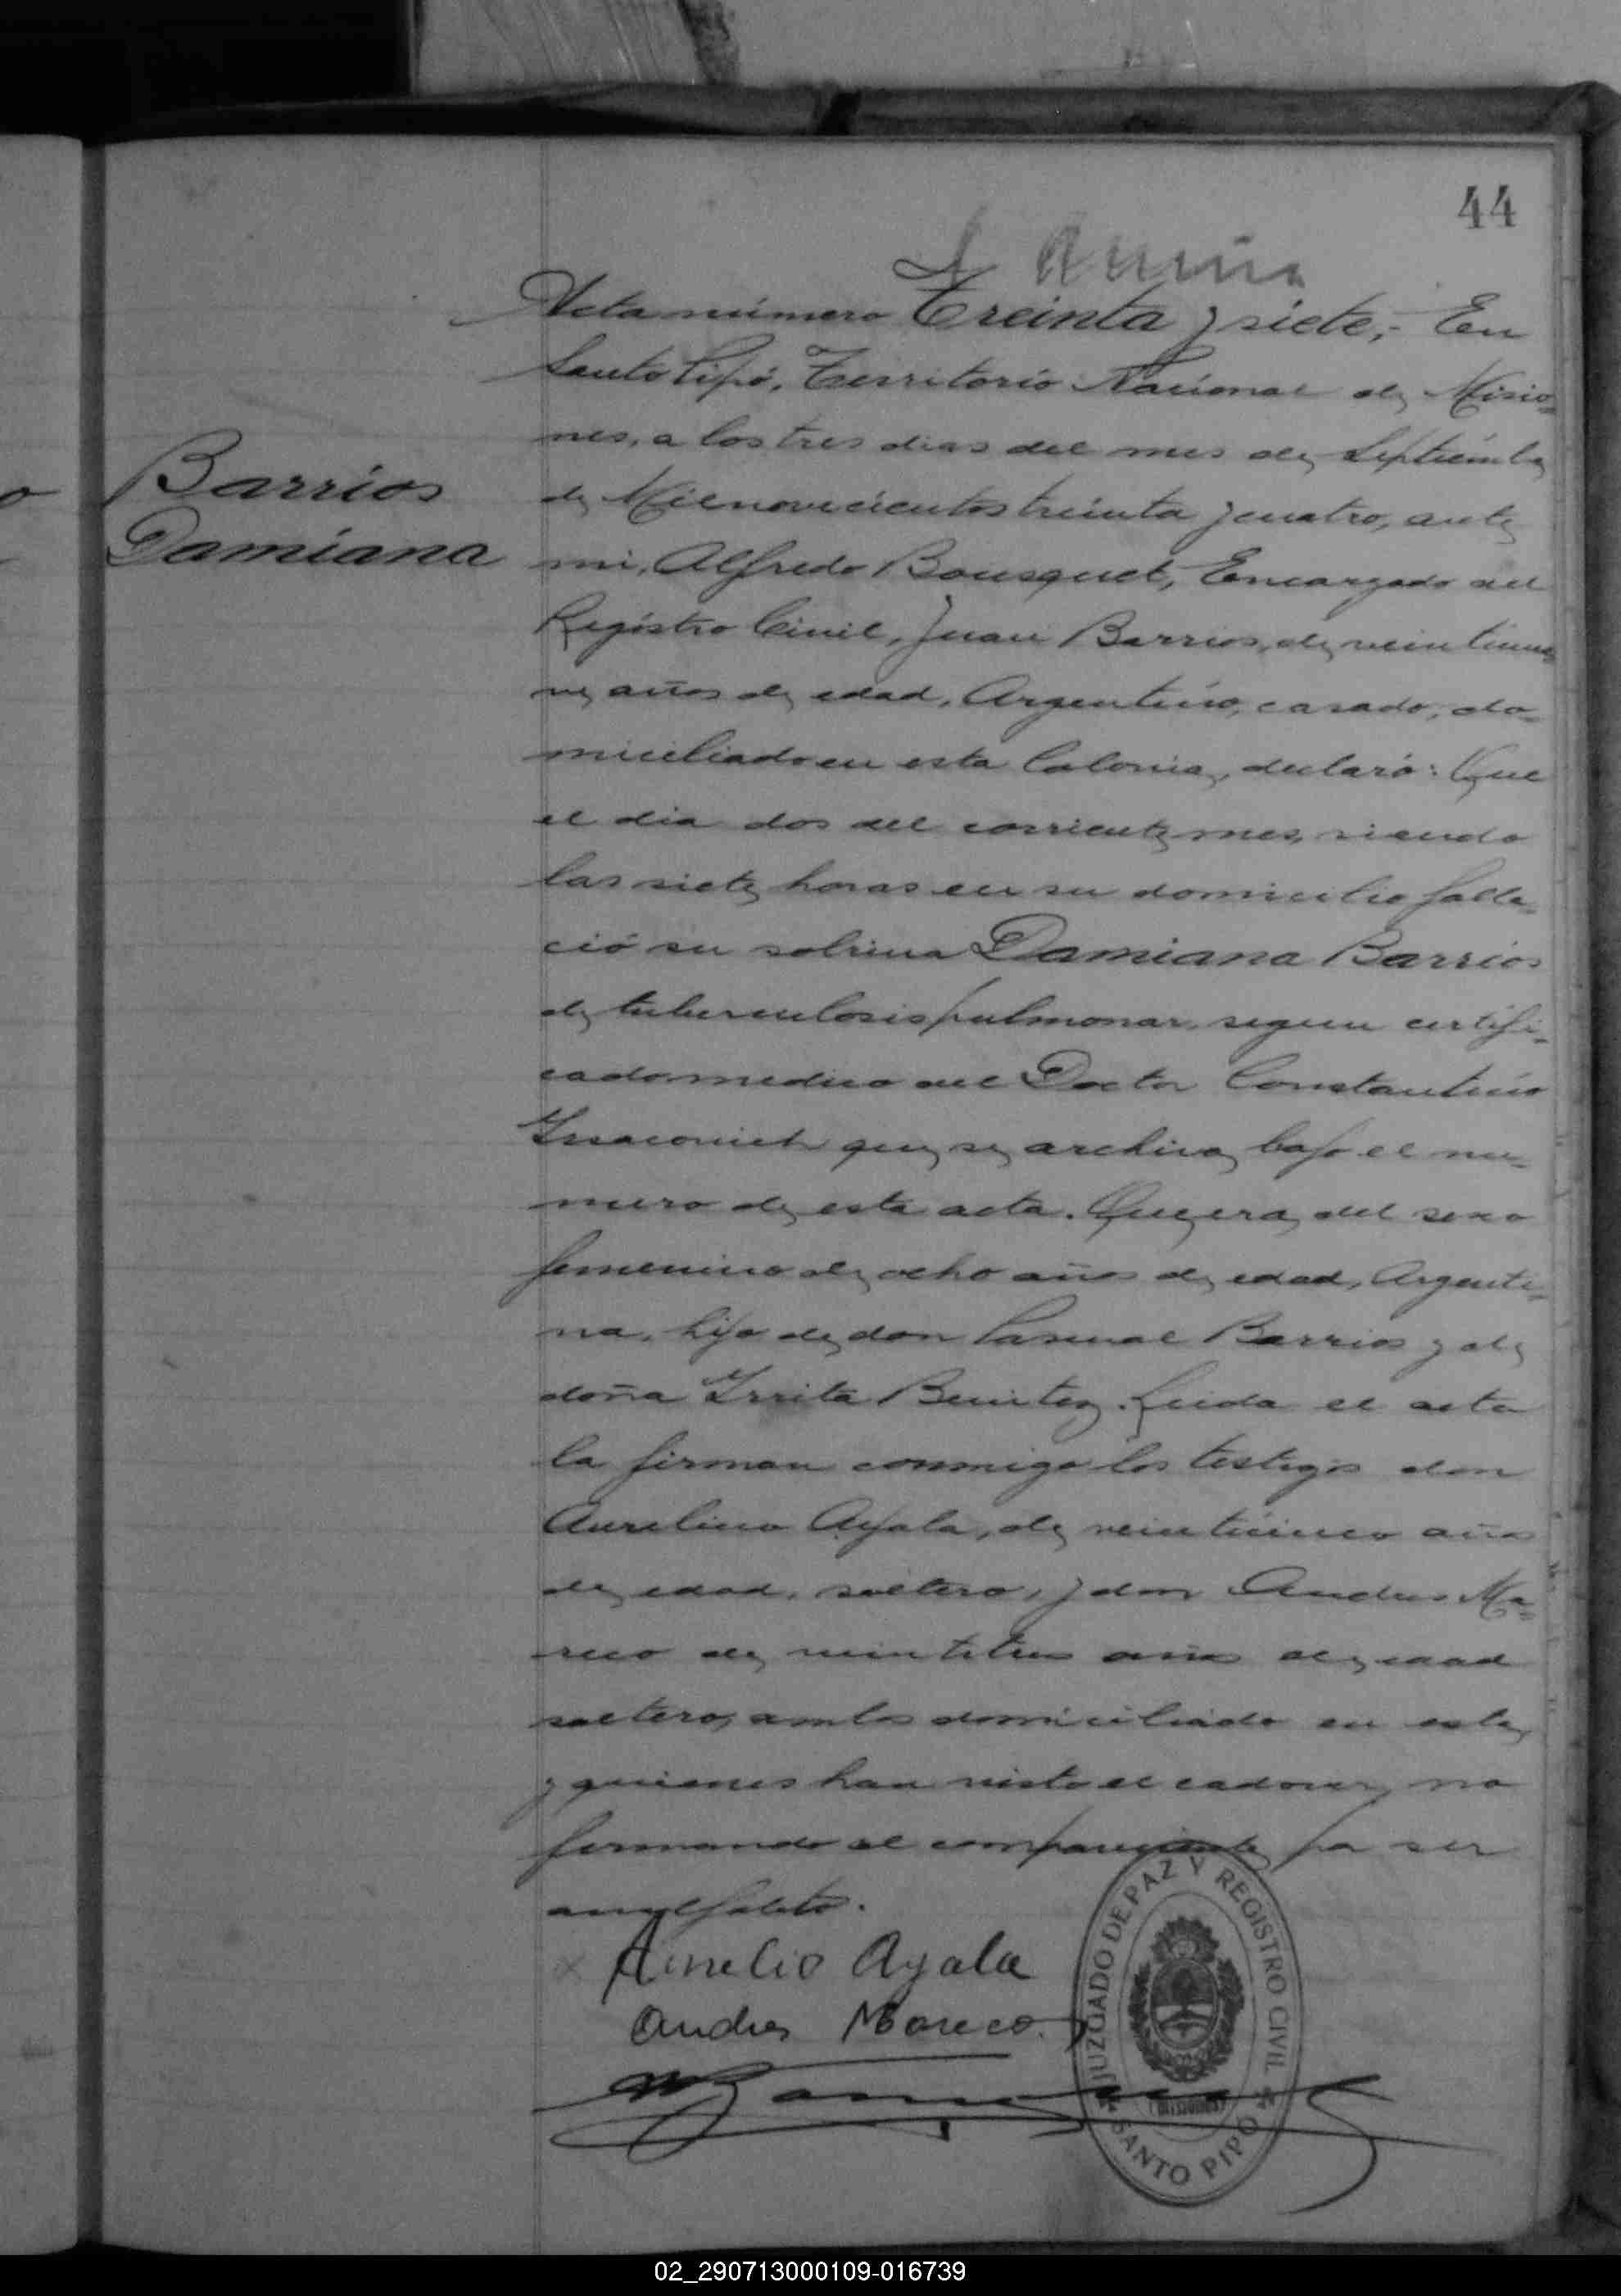 44
Acta número Treinta y siete,- En
Santo Pipó, Territorio Nacional de Misio=
nes, a los tres dias del mes de Septiembre
de Mil novecientos treinta y cuatro, ante
Barrios
Damiana
mi, Alfredo Bousquet, Encargado del
Registro Civil, Juan Barrios, de veintinue=
ve años de edad, Argentino, casado, do=
miciliado en esta Colonia, declaró: Que
el dia dos del corriente mes, siendo
las siete horas en su domicilio falle=
ció su sobrina Damiana Barrios
de tuberculosis pulmonar, segun certifi=
cado medico del Doctor Constantino
que se archiva bajo el nu=
mero de esta acta. Que era del sexo
femenino de ocho años de edad, Argenti=
na, hija de don Pascual Barrios y de
doña Irrita Benitez. Leida el acta
la firman conmigo los testigos don
Aurelino Ayala, de veinticinco años
de edad, soltero, y don Andres Ma=
reco de veintitres años de edad
soltero, ambos domiciliado en esta,
y quienes han visto el cadaver, no
firmando el compareciente por ser
analfabeto.
Aurelio Ayala
Andres Mareco.
JUZGADO DE PAZ Y REGISTRO CIVIL
MISIONES
SANTO PIPO
02_290713000109-016739